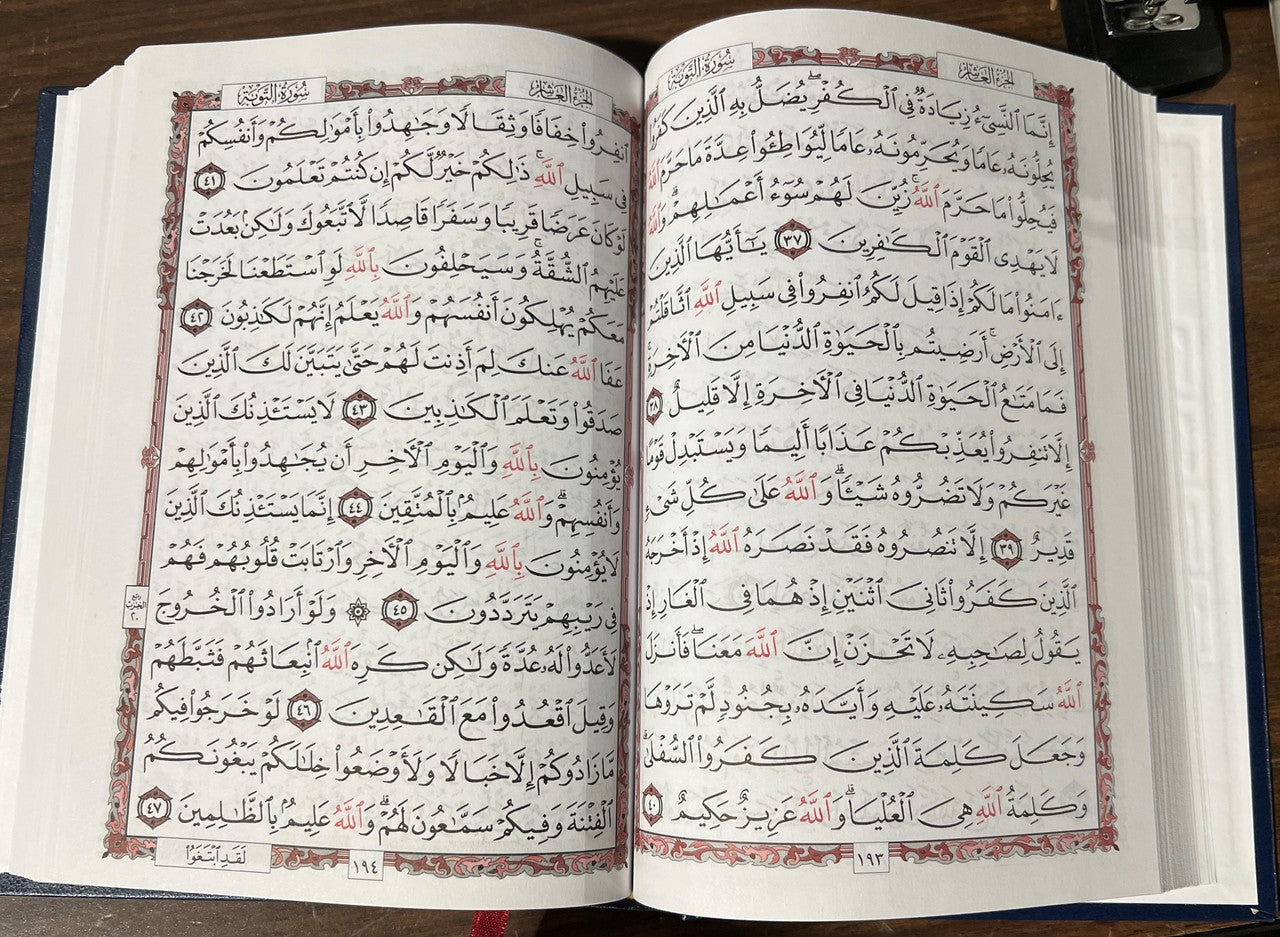 سُورَةُ التَّوْبَةِ
الجُزْءُ العَاشِرُ
إِنَّمَا ٱلنَّسِيٓءُ زِيَادَةٌ فِي ٱلْكُفْرِۖ يُضَلُّ بِهِ ٱلَّذِينَ كَفَرُوا۟
يُحِلُّونَهُۥ عَامًا وَيُحَرِّمُونَهُۥ عَامًا لِّيُوَاطِـُٔوا۟ عِدَّةَ مَا حَرَّمَ ٱللَّهُ
فَيُحِلُّوا۟ مَا حَرَّمَ ٱللَّهُۚ زُيِّنَ لَهُمْ سُوٓءُ أَعْمَٰلِهِمْۗ وَٱللَّهُ
لَا يَهْدِى ٱلْقَوْمَ ٱلْكَٰفِرِينَ ٣٧ يَٰٓأَيُّهَا ٱلَّذِينَ
ءَامَنُوا۟ مَا لَكُمْ إِذَا قِيلَ لَكُمُ ٱنفِرُوا۟ فِى سَبِيلِ ٱللَّهِ ٱثَّاقَلْتُمْ
إِلَى ٱلْأَرْضِۚ أَرَضِيتُم بِٱلْحَيَوٰةِ ٱلدُّنْيَا مِنَ ٱلْءَاخِرَةِۚ
فَمَا مَتَٰعُ ٱلْحَيَوٰةِ ٱلدُّنْيَا فِى ٱلْءَاخِرَةِ إِلَّا قَلِيلٌ ٣٨
إِلَّا تَنفِرُوا۟ يُعَذِّبْكُمْ عَذَابًا أَلِيمًا وَيَسْتَبْدِلْ قَوْمًا
غَيْرَكُمْ وَلَا تَضُرُّوهُ شَيْـًٔاۗ وَٱللَّهُ عَلَىٰ كُلِّ شَىْءٍ
قَدِيرٌ ٣٩ إِلَّا تَنصُرُوهُ فَقَدْ نَصَرَهُ ٱللَّهُ إِذْ أَخْرَجَهُ
ٱلَّذِينَ كَفَرُوا۟ ثَانِىَ ٱثْنَيْنِ إِذْ هُمَا فِى ٱلْغَارِ إِذْ
يَقُولُ لِصَٰحِبِهِۦ لَا تَحْزَنْ إِنَّ ٱللَّهَ مَعَنَاۖ فَأَنزَلَ
ٱللَّهُ سَكِينَتَهُۥ عَلَيْهِ وَأَيَّدَهُۥ بِجُنُودٍ لَّمْ تَرَوْهَا
وَجَعَلَ كَلِمَةَ ٱلَّذِينَ كَفَرُوا۟ ٱلسُّفْلَىٰۗ
وَكَلِمَةُ ٱللَّهِ هِىَ ٱلْعُلْيَاۗ وَٱللَّهُ عَزِيزٌ حَكِيمٌ ٤٠
١٩٣
الجُزْءُ العَاشِرُ
سُورَةُ التَّوْبَةِ
ٱنفِرُوا۟ خِفَافًا وَثِقَالًا وَجَٰهِدُوا۟ بِأَمْوَٰلِكُمْ وَأَنفُسِكُمْ
فِى سَبِيلِ ٱللَّهِۚ ذَٰلِكُمْ خَيْرٌ لَّكُمْ إِن كُنتُمْ تَعْلَمُونَ ٤١
لَوْ كَانَ عَرَضًا قَرِيبًا وَسَفَرًا قَاصِدًا لَّٱتَّبَعُوكَ وَلَٰكِنۢ بَعُدَتْ
عَلَيْهِمُ ٱلشُّقَّةُۚ وَسَيَحْلِفُونَ بِٱللَّهِ لَوِ ٱسْتَطَعْنَا لَخَرَجْنَا
مَعَكُمْ يُهْلِكُونَ أَنفُسَهُمْ وَٱللَّهُ يَعْلَمُ إِنَّهُمْ لَكَٰذِبُونَ ٤٢
عَفَا ٱللَّهُ عَنكَ لِمَ أَذِنتَ لَهُمْ حَتَّىٰ يَتَبَيَّنَ لَكَ ٱلَّذِينَ
صَدَقُوا۟ وَتَعْلَمَ ٱلْكَٰذِبِينَ ٤٣ لَا يَسْتَـْٔذِنُكَ ٱلَّذِينَ
يُؤْمِنُونَ بِٱللَّهِ وَٱلْيَوْمِ ٱلْءَاخِرِ أَن يُجَٰهِدُوا۟ بِأَمْوَٰلِهِمْ
وَأَنفُسِهِمْۗ وَٱللَّهُ عَلِيمٌۢ بِٱلْمُتَّقِينَ ٤٤ إِنَّمَا يَسْتَـْٔذِنُكَ ٱلَّذِينَ
لَا يُؤْمِنُونَ بِٱللَّهِ وَٱلْيَوْمِ ٱلْءَاخِرِ وَٱرْتَابَتْ قُلُوبُهُمْ فَهُمْ
فِى رَيْبِهِمْ يَتَرَدَّدُونَ ٤٥ ۞ وَلَوْ أَرَادُوا۟ ٱلْخُرُوجَ
لَأَعَدُّوا۟ لَهُۥ عُدَّةً وَلَٰكِن كَرِهَ ٱللَّهُ ٱنۢبِعَاثَهُمْ فَثَبَّطَهُمْ
وَقِيلَ ٱقْعُدُوا۟ مَعَ ٱلْقَٰعِدِينَ ٤٦ لَوْ خَرَجُوا۟ فِيكُم
مَّا زَادُوكُمْ إِلَّا خَبَالًا وَلَأَوْضَعُوا۟ خِلَٰلَكُمْ يَبْغُونَكُمُ
ٱلْفِتْنَةَ وَفِيكُمْ سَمَّٰعُونَ لَهُمْۗ وَٱللَّهُ عَلِيمٌۢ بِٱلظَّٰلِمِينَ ٤٧
لَقَدِ ٱبْتَغَوُا۟
١٩٤